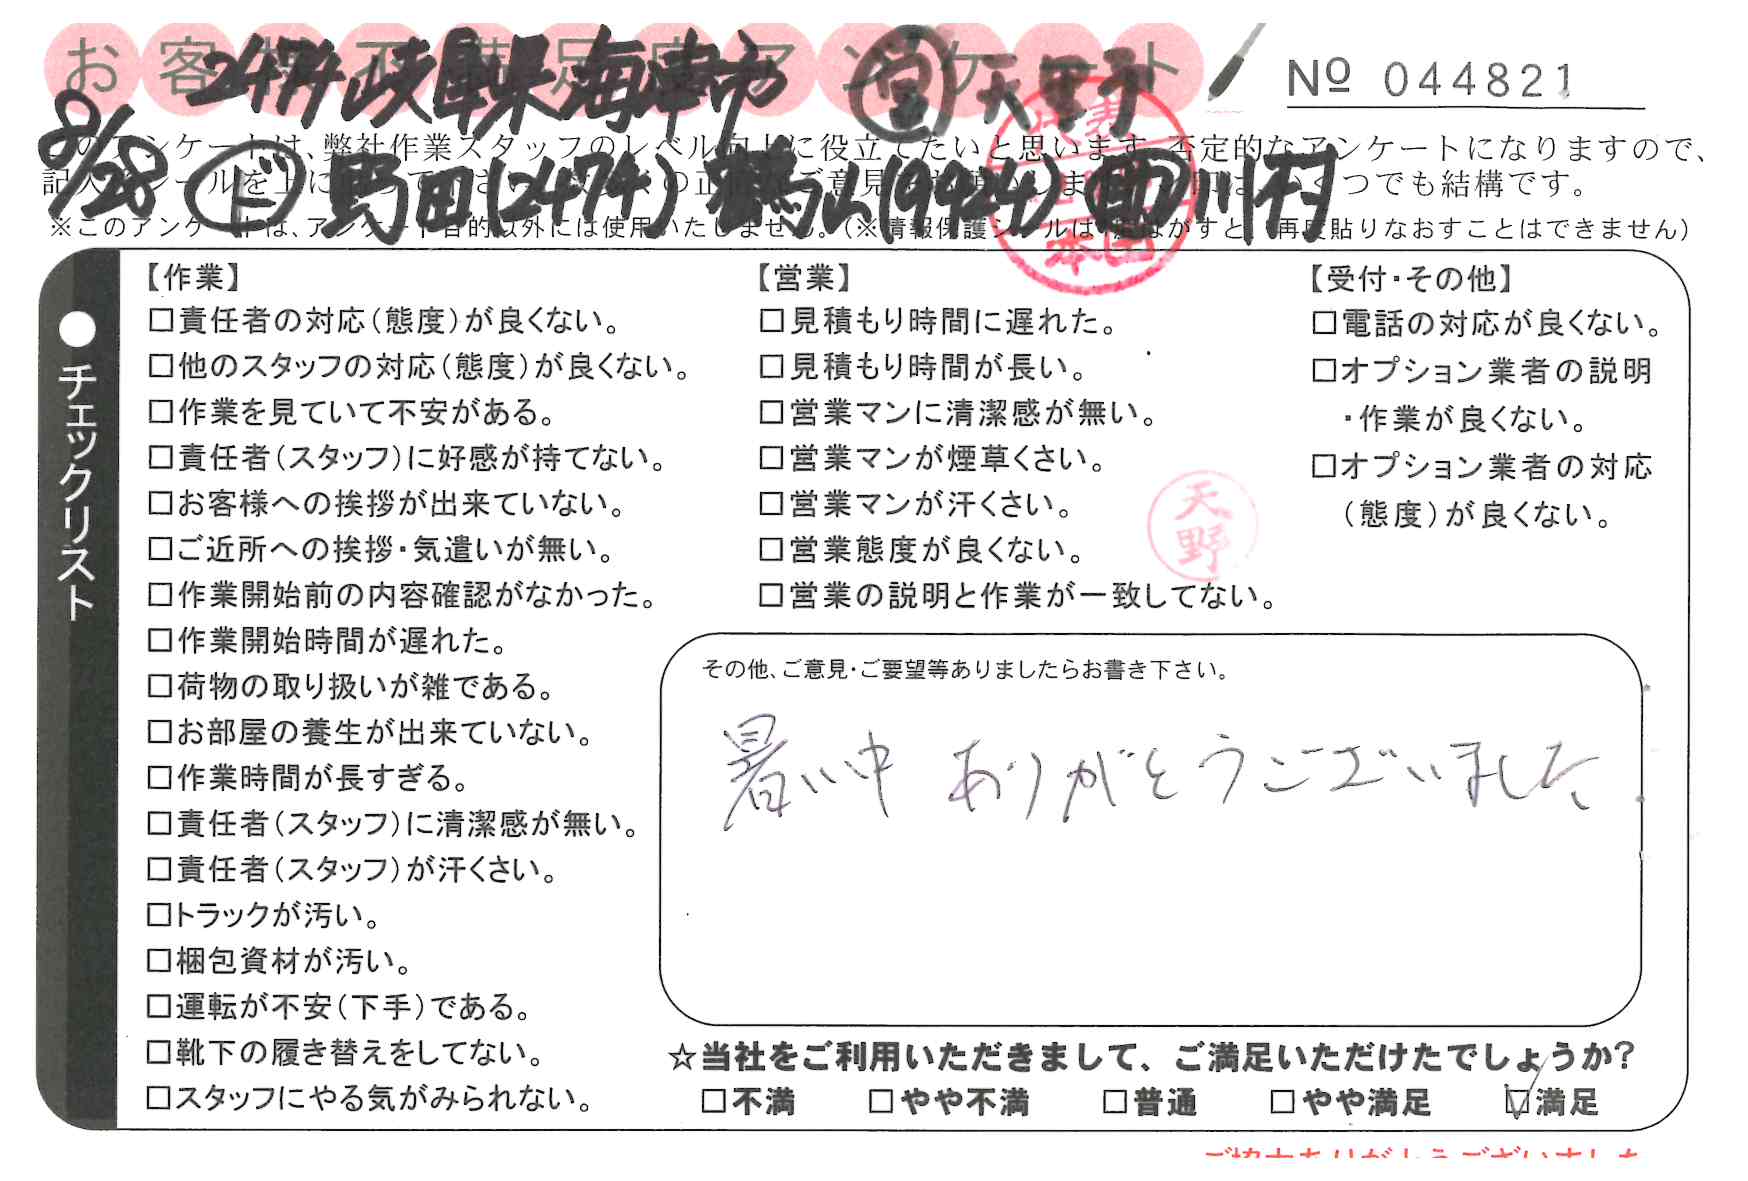 お客様不満足度アンケート
№ 044821
2474 岐阜県海津市 営 天野
8/28 ド 野田(2474) 鶴山(9424) 助 川村
このアンケートは、弊社作業スタッフのレベル向上に役立てたいと思います。否定的なアンケートになりますので、
※このアンケートは、アンケート目的以外には使用いたしません。(※情報保護シールは一度はがすと、再度貼りなおすことはできません)
●チェックリスト
【作業】
□責任者の対応(態度)が良くない。
□他のスタッフの対応(態度)が良くない。
□作業を見ていて不安がある。
□責任者(スタッフ)に好感が持てない。
□お客様への挨拶が出来ていない。
□ご近所への挨拶・気遣いが無い。
□作業開始前の内容確認がなかった。
□作業開始時間が遅れた。
□荷物の取り扱いが雑である。
□お部屋の養生が出来ていない。
□作業時間が長すぎる。
□責任者(スタッフ)に清潔感が無い。
□責任者(スタッフ)が汗くさい。
□トラックが汚い。
□梱包資材が汚い。
□運転が不安(下手)である。
□靴下の履き替えをしてない。
□スタッフにやる気がみられない。
【営業】
□見積もり時間に遅れた。
□見積もり時間が長い。
□営業マンに清潔感が無い。
□営業マンが煙草くさい。
□営業マンが汗くさい。
□営業態度が良くない。
□営業の説明と作業が一致してない。
天野
【受付・その他】
□電話の対応が良くない。
□オプション業者の説明
・作業が良くない。
□オプション業者の対応
(態度)が良くない。
その他、ご意見・ご要望等ありましたらお書き下さい。
暑い中 ありがとうございました
☆当社をご利用いただきまして、ご満足いただけたでしょうか?
□不満 □やや不満 □普通 □やや満足 ☑満足
ご協力ありがとうございました